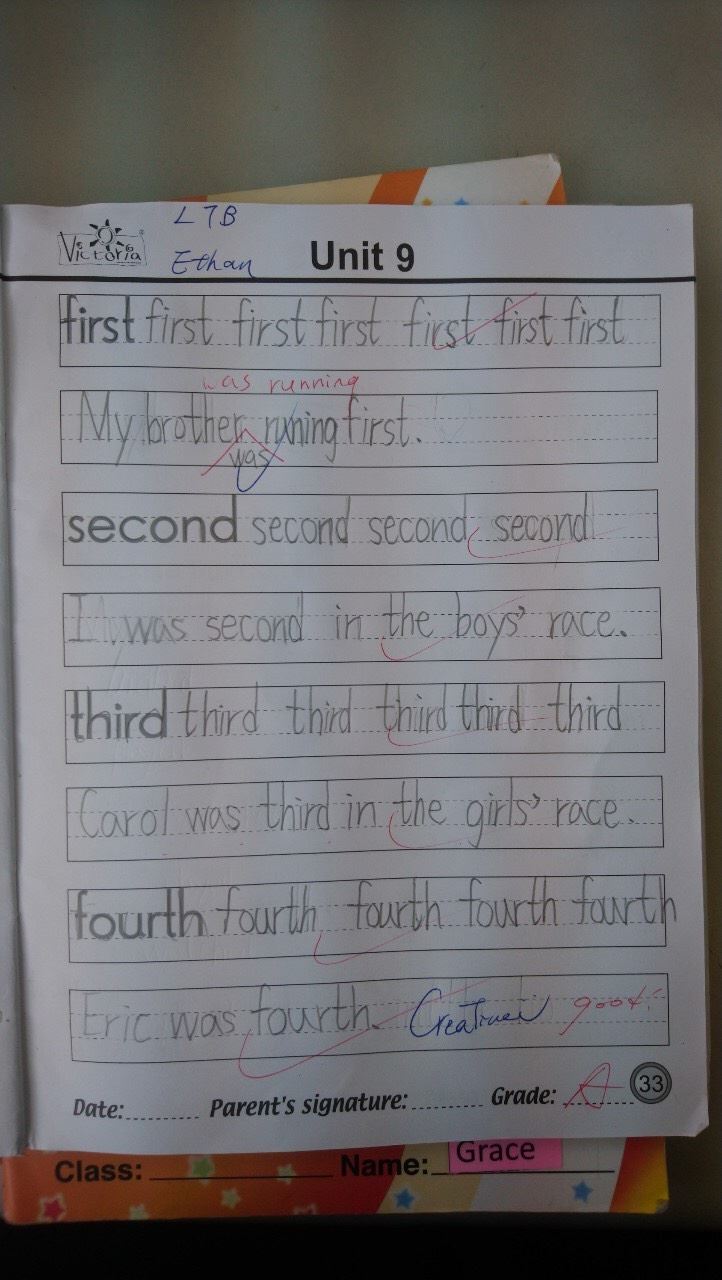 L7B
Victoria
Ethan
Unit 9
first first first first first first first
was running
My brother runing first.
was
second second second second
I was second in the boys' race.
third third third third third third
Carol was third in the girls' race.
fourth fourth fourth fourth fourth
Eric was fourth. good!
Date: Parent's signature: Grade: A 33
Class: Name: Grace